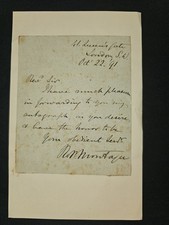 London S.E.
Oct 22. 91
Dear Sir
I have much pleasure
in forwarding to you my
autograph as you desire
& have the honor to be
Your obedient Servt.